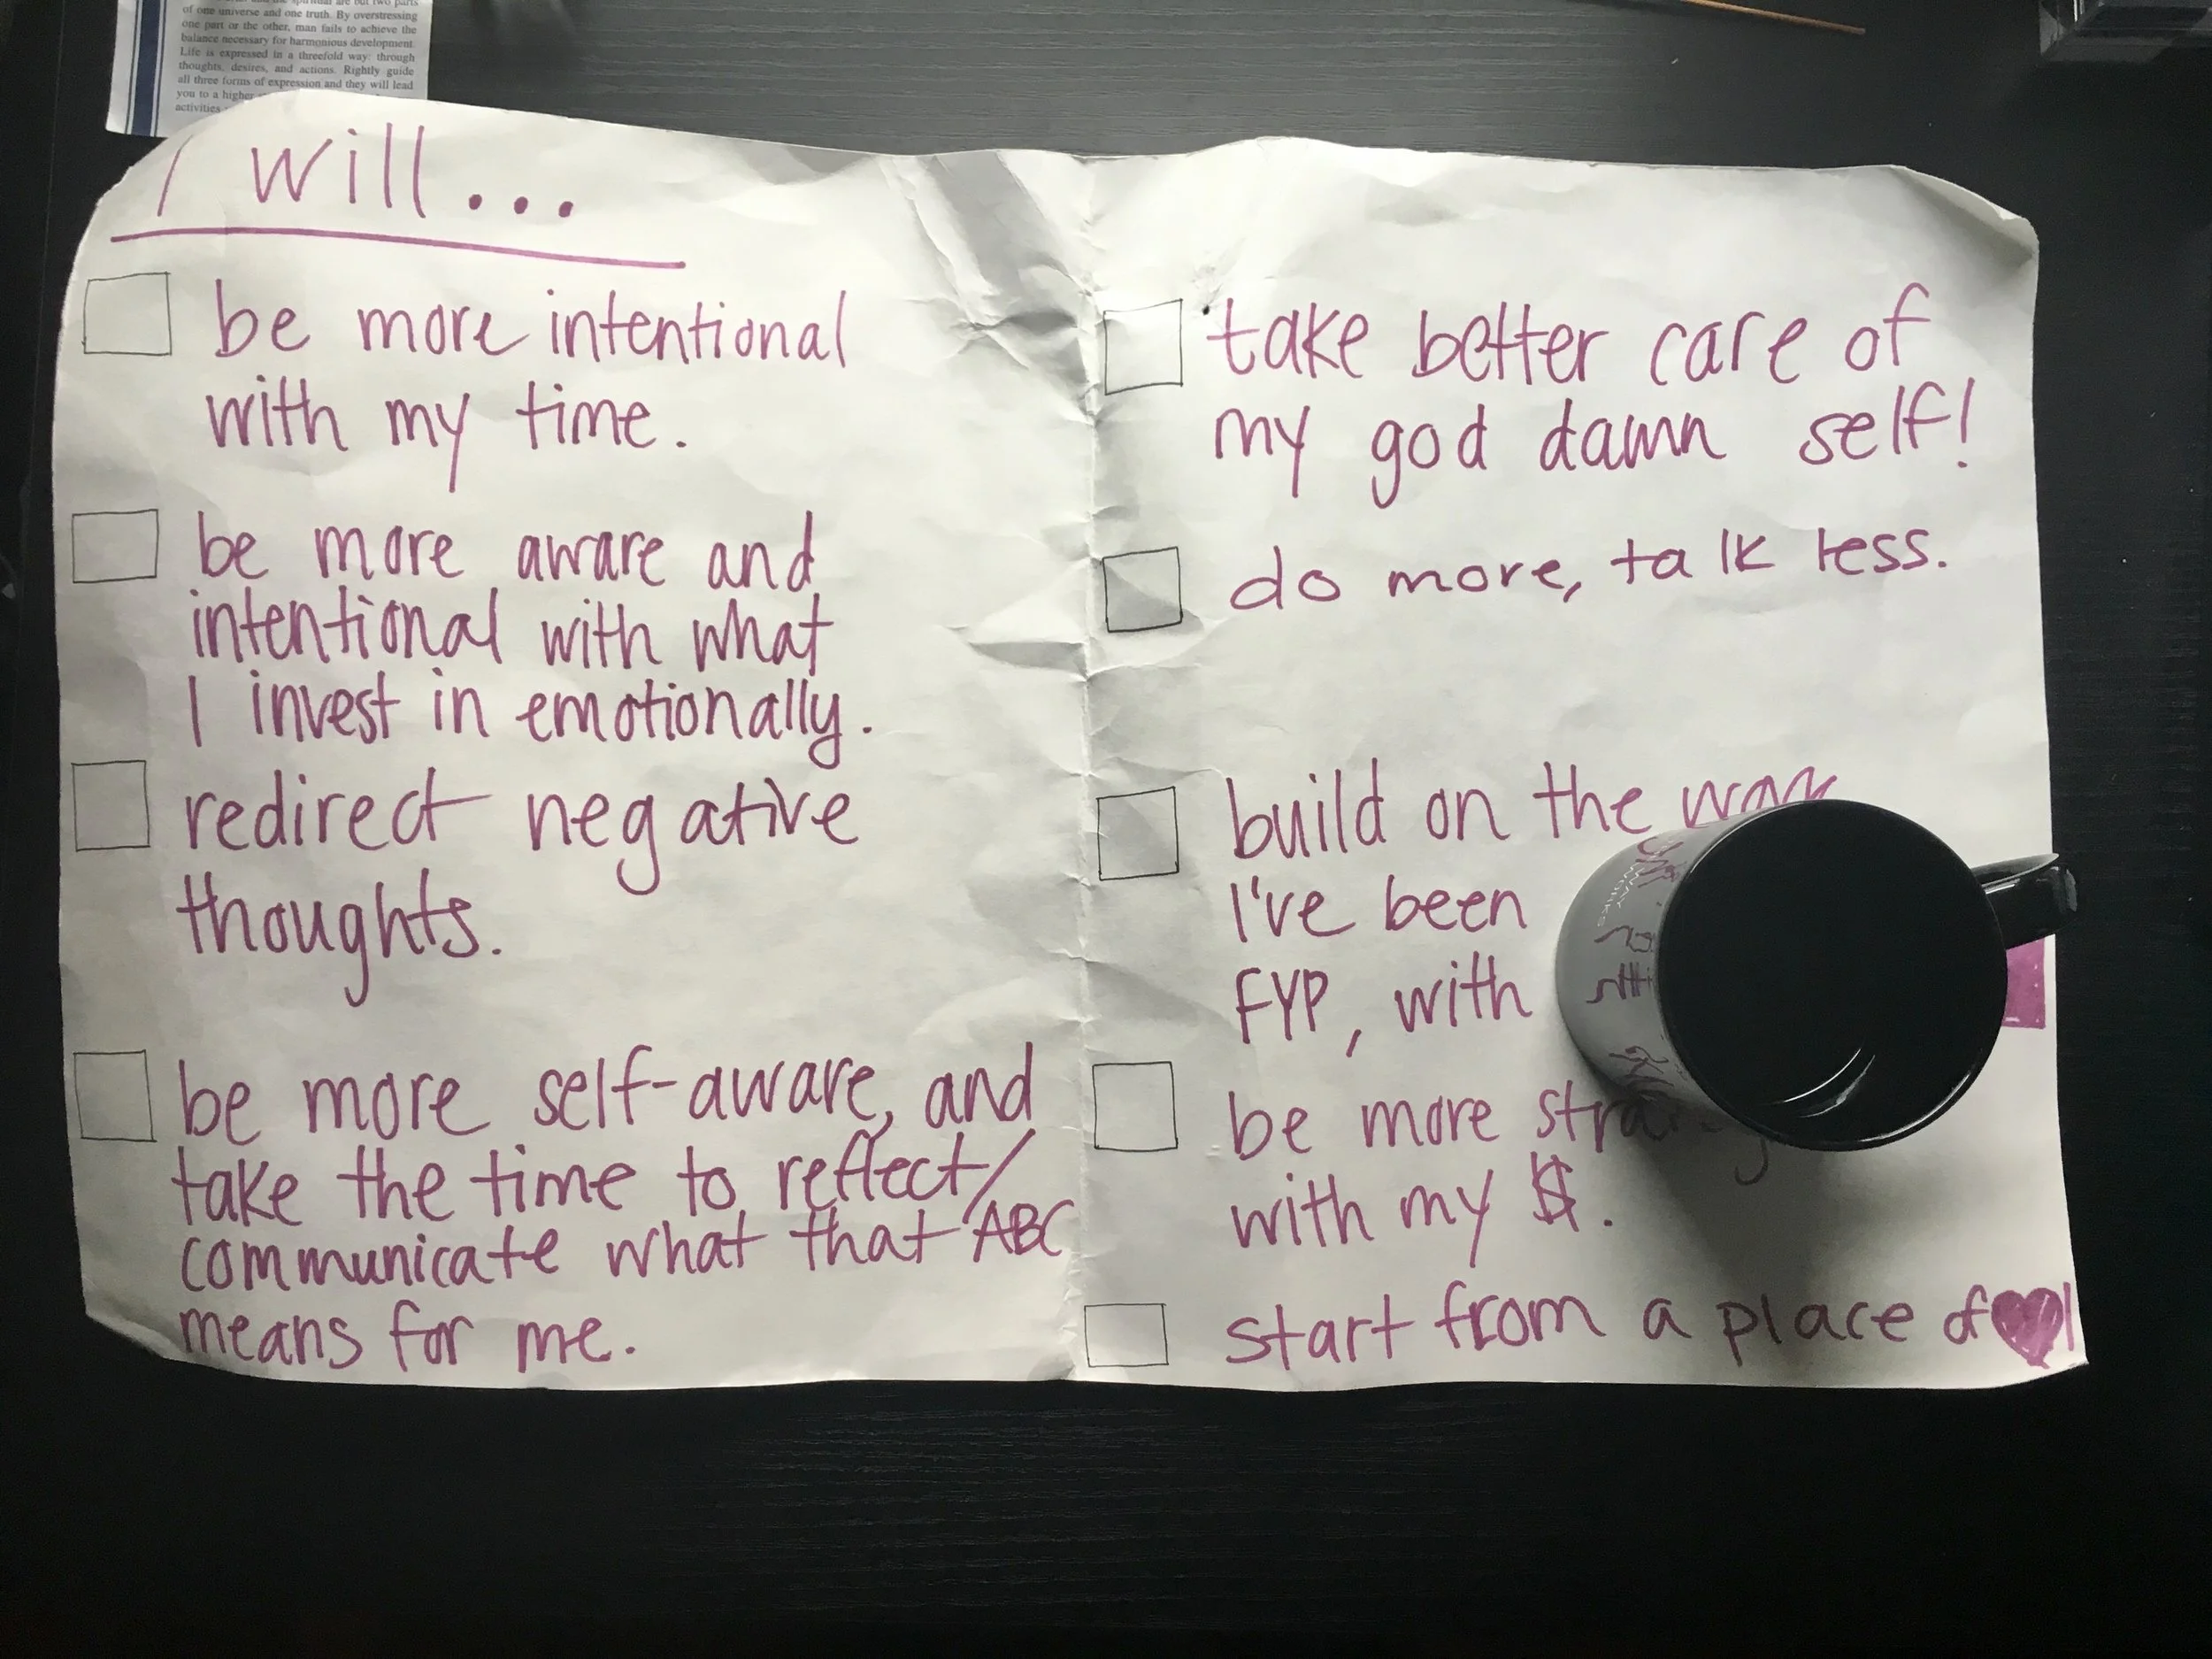 of one universe and one truth. By overstressing
one part or the other, man fails to achieve the
balance necessary for harmonious development.
Life is expressed in a threefold way: through
thoughts, desires, and actions. Rightly guide
all three forms of expression and they will lead
you to a higher
activities
I will...
be more intentional
with my time.
be more aware and
intentional with what
I invest in emotionally.
redirect negative
thoughts.
be more self-aware, and
take the time to reflect/
communicate what that ABC
means for me.
take better care of
my god damn self!
do more, talk less.
build on the
I've been
FYP, with
be more
with my $.
start from a place of ♥